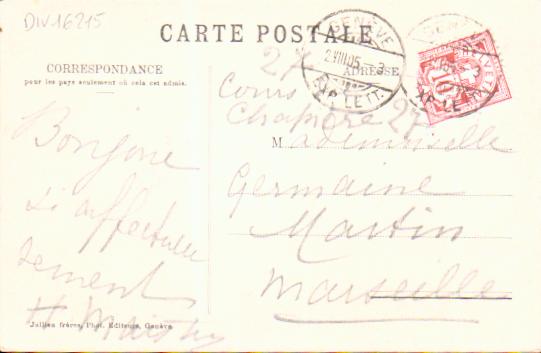 DIV16215
CARTE POSTALE
GENÈVE
2.VIII.05 - 3
EXP. LETT.
CORRESPONDANCE
pour les pays seulement où cela est admis.
ADRESSE
27
Cours
Chapitre 27
Mademoiselle
Germaine
Martin
Marseille
Bonjour
si affectueu
sement
H
Jullien frères, Phot. Editeurs, Genève
HELVETIA
10